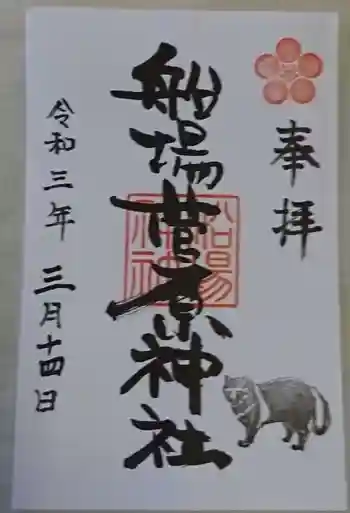 奉拝
船場菅原神社
令和三年三月十四日